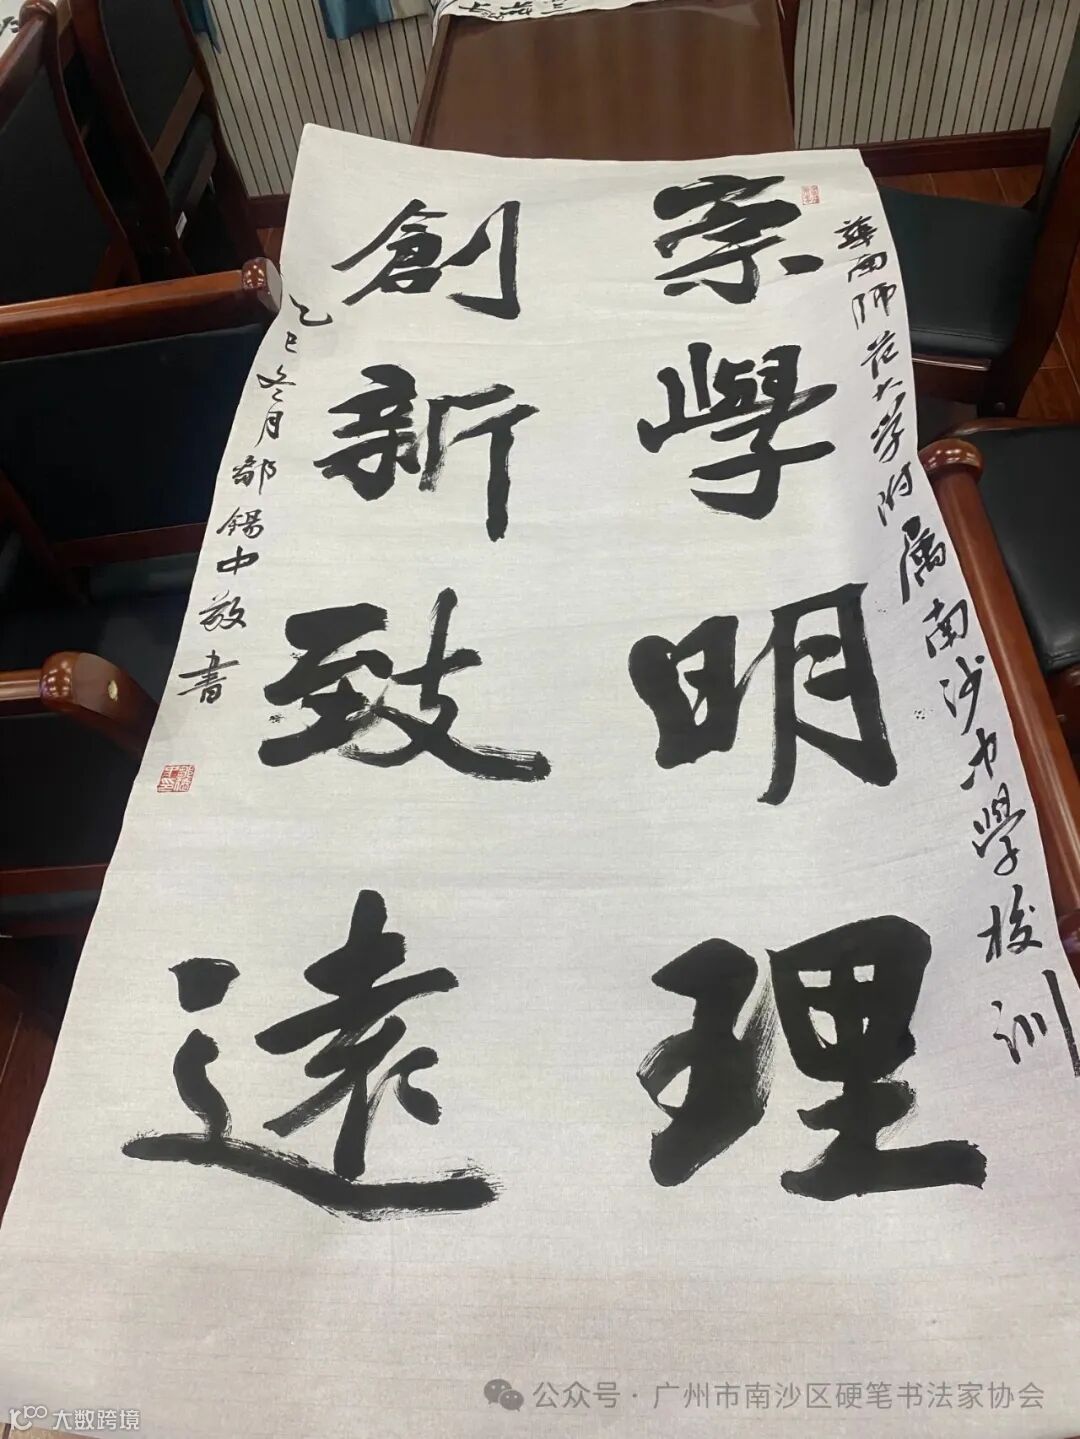 華南师范大学附属南沙中學校训
崇學明理
創新致遠
乙巳冬月邹锡中敬書
公众号·广州市南沙区硬笔书法家协会
大数跨境